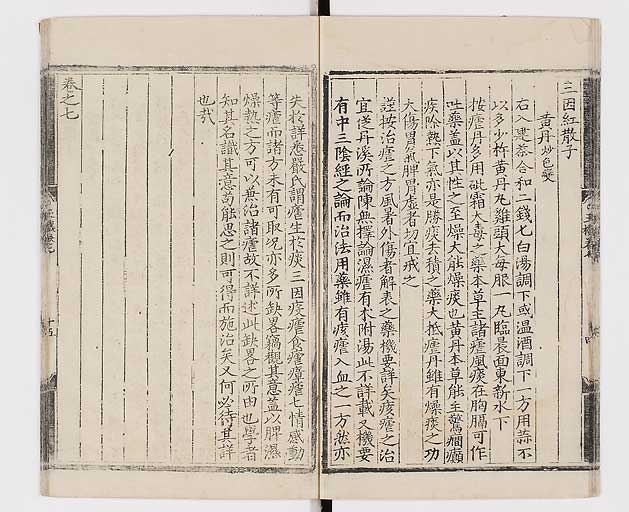 三因紅散子
黄丹炒色變
右入建茶合和二錢匕白湯調下或温酒調下一方用蒜不
以多少杵黄丹丸雞頭大每服一丸臨晨面東新水下
按瘧丹多用砒霜大毒之藥本草主諸瘧風痰在胸膈可作
吐藥盖以其性之至燥大能燥痰也黄丹本草能主驚癎癲
疾除熱下氣亦是勝痰去積之藥大抵瘧丹雖有燥痰之功
大傷胃氣脾胃虚者切宜戒之
謹按治瘧之方風暑外傷者解表之藥機要詳矣痰瘧之治
宜從丹溪所論陳無擇論濕瘧有术附湯此不詳載又機要
有中三陰經之論而治法用藥雖有痎瘧入血之一方然亦
失於詳悉嚴氏謂瘧生於痰三因疫瘧食瘧瘴瘧七情感動
等瘧而諸方未有可取况亦多所缺畧竊觀其意盖以脾濕
燥熱之方可以兼治諸瘧故不詳述此缺畧之所由也學者
知其名識其意苟能思之則可得而施治矣又何必待其詳
也哉
卷之七
十五